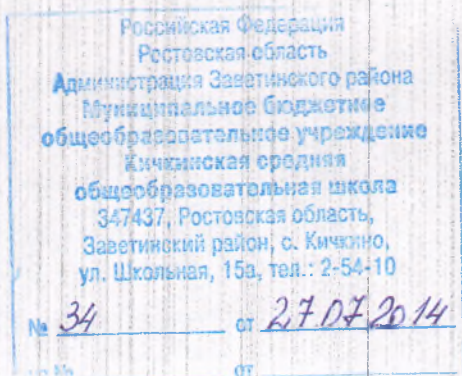 Российская Федерация
Ростовская область
Администрация Заветинского района
Муниципальное бюджетное
общеобразовательное учреждение
Кичкинская средняя
общеобразовательная школа
347437, Ростовская область,
Заветинский район, с. Кичкино,
ул. Школьная, 15а, тел.: 2-54-10
№ 34 от 27 07 2014
№ от